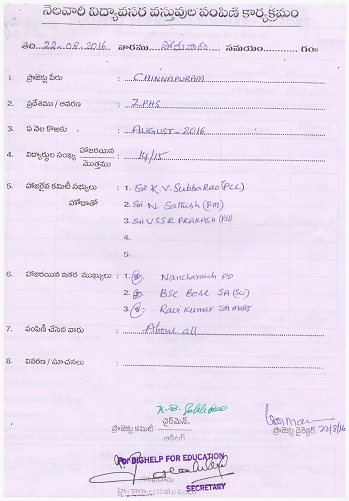 నెలవారి విద్యావసర వస్తువుల పంపిణి కార్యక్రమం
తేది..22-08-2016 వారము సోమవారం సమయం గం॥
1. ప్రాజెక్టు పేరు : CHINNAPURAM
2. ప్రదేశము / ఆవరణ : ZPHS
3. ఏ నెల కొఱకు : AUGUST-2016
4. విద్యార్థుల సంఖ్య హాజరయిన / మొత్తము : 14/15
5. హాజరైన కమిటీ సభ్యులు : 1. Sri K.V. Subba Rao (PCC)
హోదాతో 2. Sri N. Sathish (PM)
3. Sri U S S R PRAKASH (PD)
4.
5.
6. హాజరయిన ఇతర ముఖ్యులు : 1. Nancharaiah PD
2. BSC Bose SA
3. Ravi Kumar SA Maths
7. పంపిణీ చేసిన వారు : Above all
8. వివరణ / సూచనలు :
ప్రాజెక్టు కమిటీ ఛైర్మెన్. ప్రాజెక్టు డైరెక్టర్ 22/8/16
ఆడిటర్
For BIGHELP FOR EDUCATION
SECRETARY